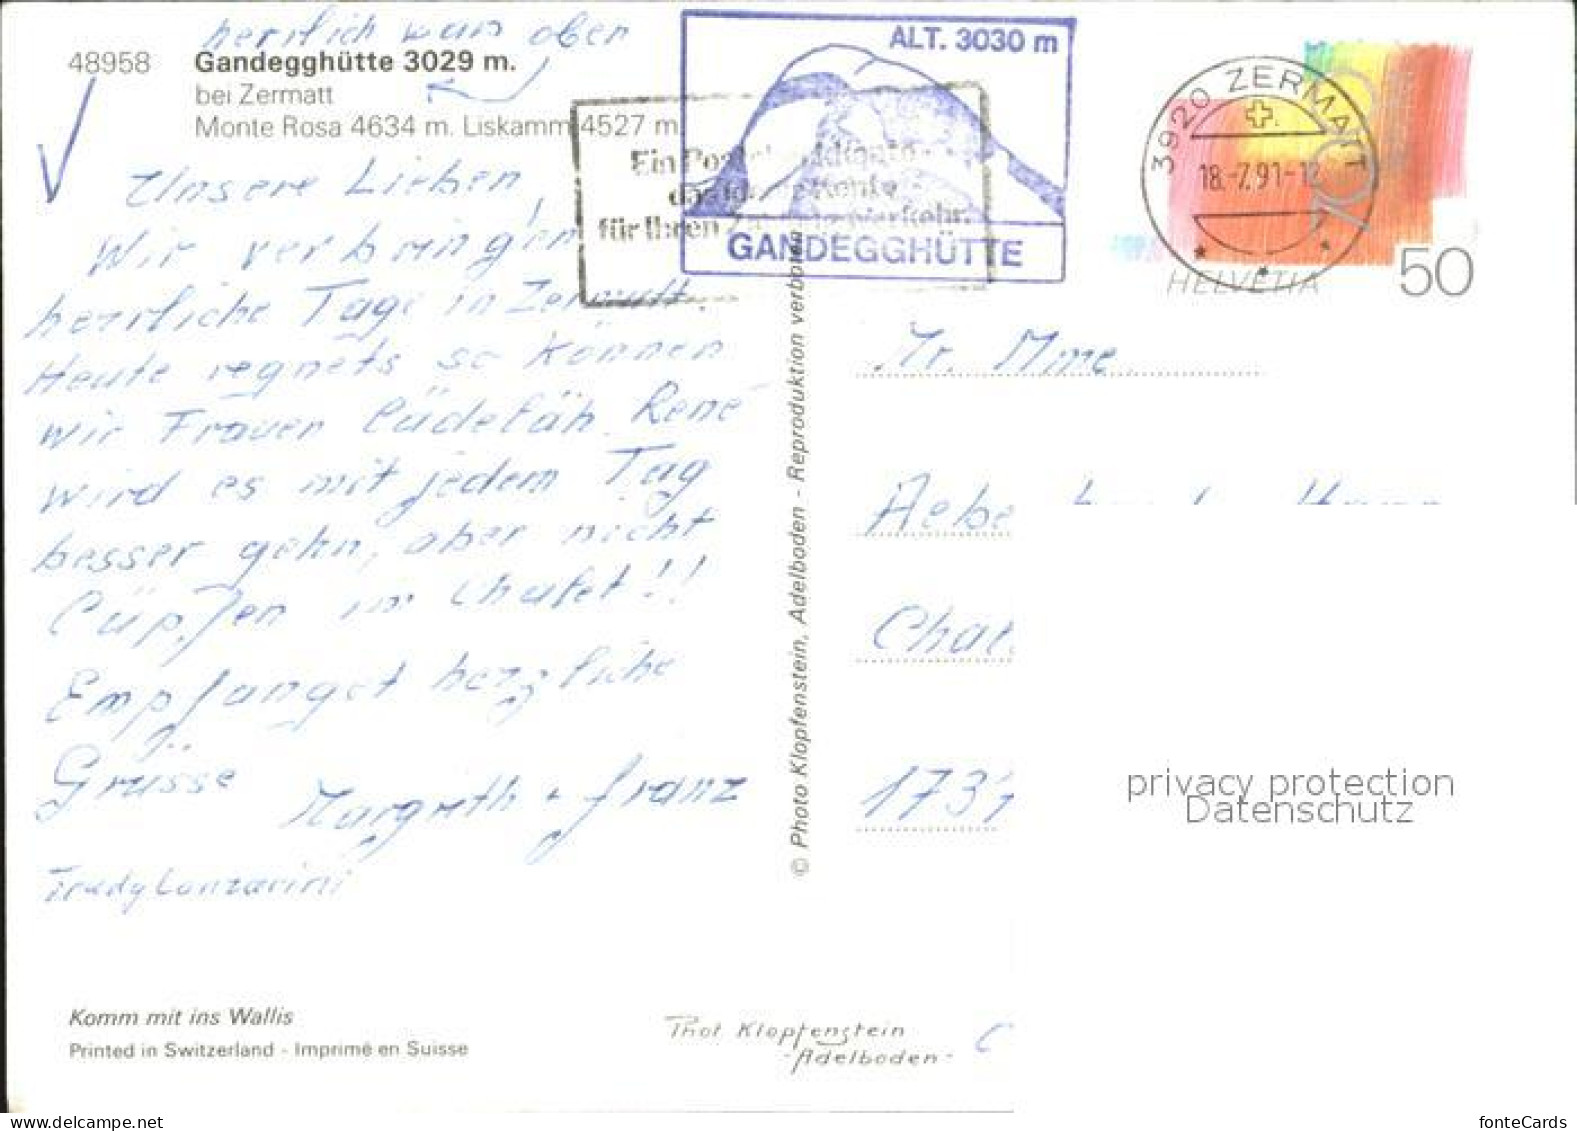 herrlich wars oben
48958
Gandegghütte 3029 m.
bei Zermatt
Monte Rosa 4634 m. Liskamm 4527 m.
ALT. 3030 m
GANDEGGHÜTTE
Ein
für Ihren
3920 ZERMATT
18.-7.91-12
HELVETIA
50
Unsere Lieben,
Wir verbringen
herrliche Tage in Zermatt.
Heute regnets so können
wir Frauen Lüdeläh. René
wird es mit jedem Tag
besser gehn, aber nicht
Lüpfen im Chalet!!
Empfanget herzliche
Grüsse
Margrith + Franz
Trudy Lanzarini
© Photo Klopfenstein, Adelboden - Reproduktion verboten
Mr. Mme
Aebe
Chal
1737
Komm mit ins Wallis
Printed in Switzerland - Imprimé en Suisse
Phot Klopfenstein
-Adelboden-
privacy protection
Datenschutz
fonteCards